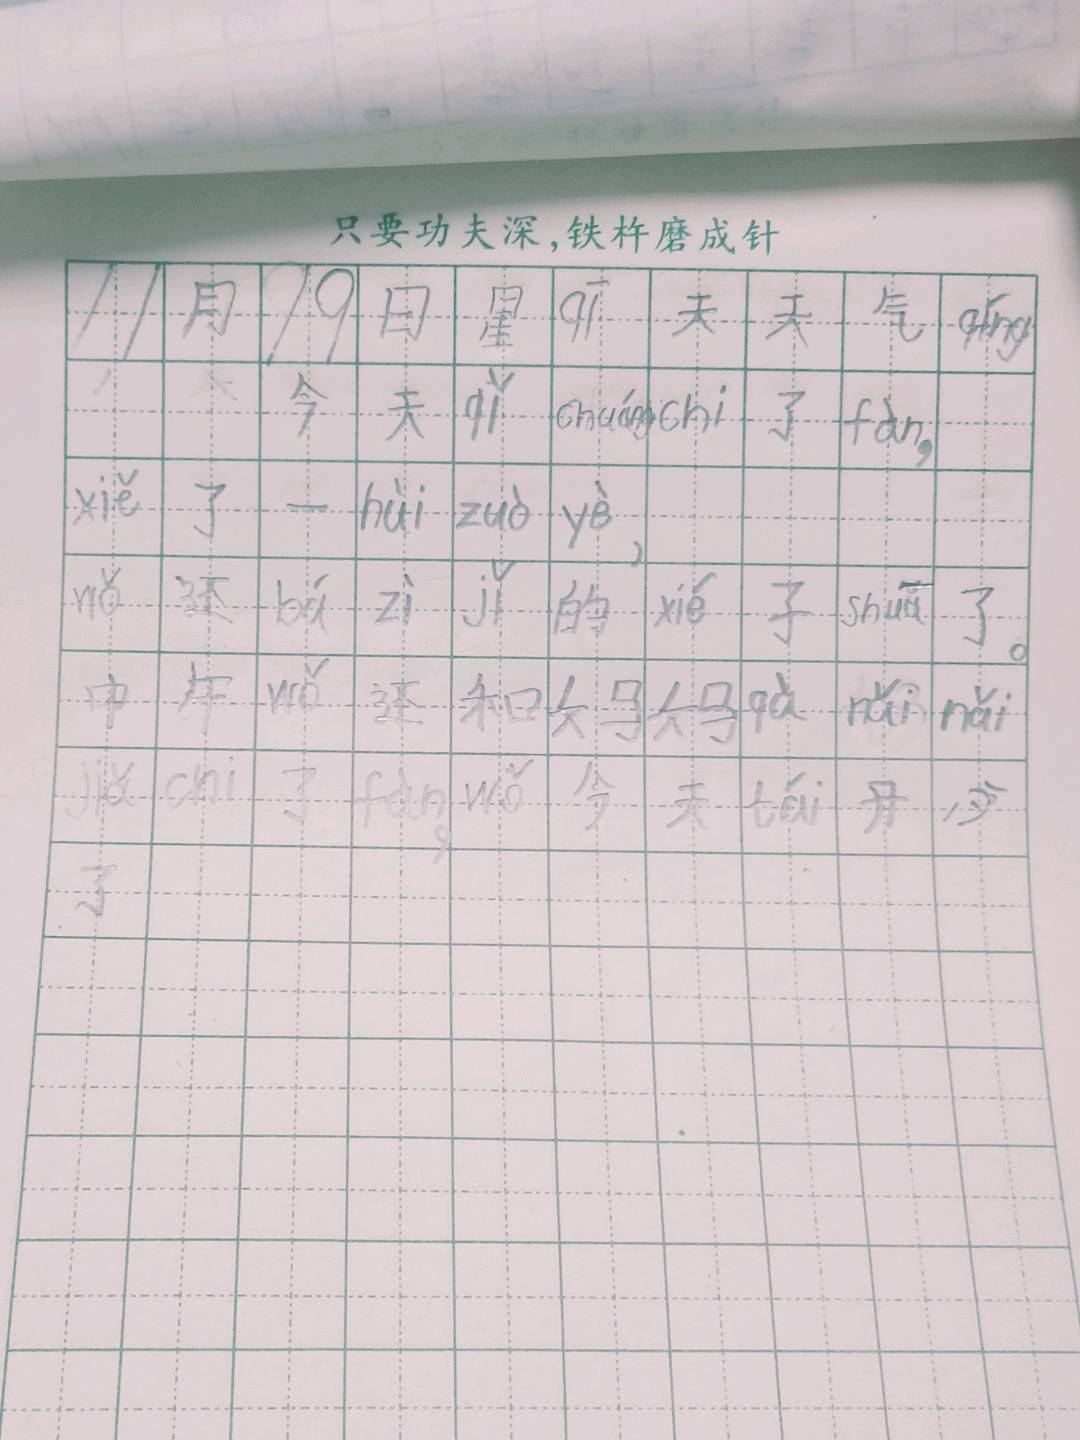 只要功夫深,铁杵磨成针
11月19日星qī天天气qíng
今天qǐchuángchi了fàn,
xiě了一hùizuòyè,
wǒ还bázìjǐ的xié子shuā了。
中午wǒ还和妈妈qùnǎinǎi
jiāchi了fàn,wǒ今天tái开心
了